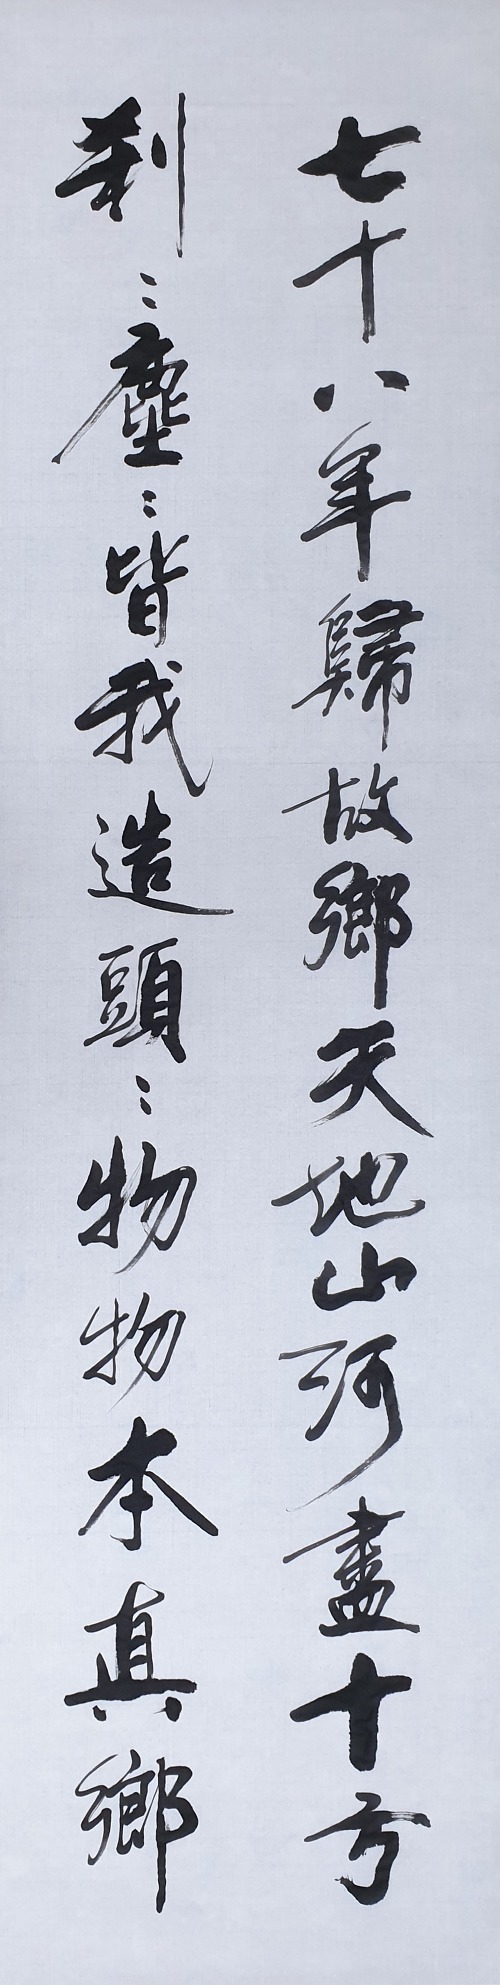 七十八年歸故鄉天地山河盡十方
刹〻塵〻皆我造頭〻物物本真鄉